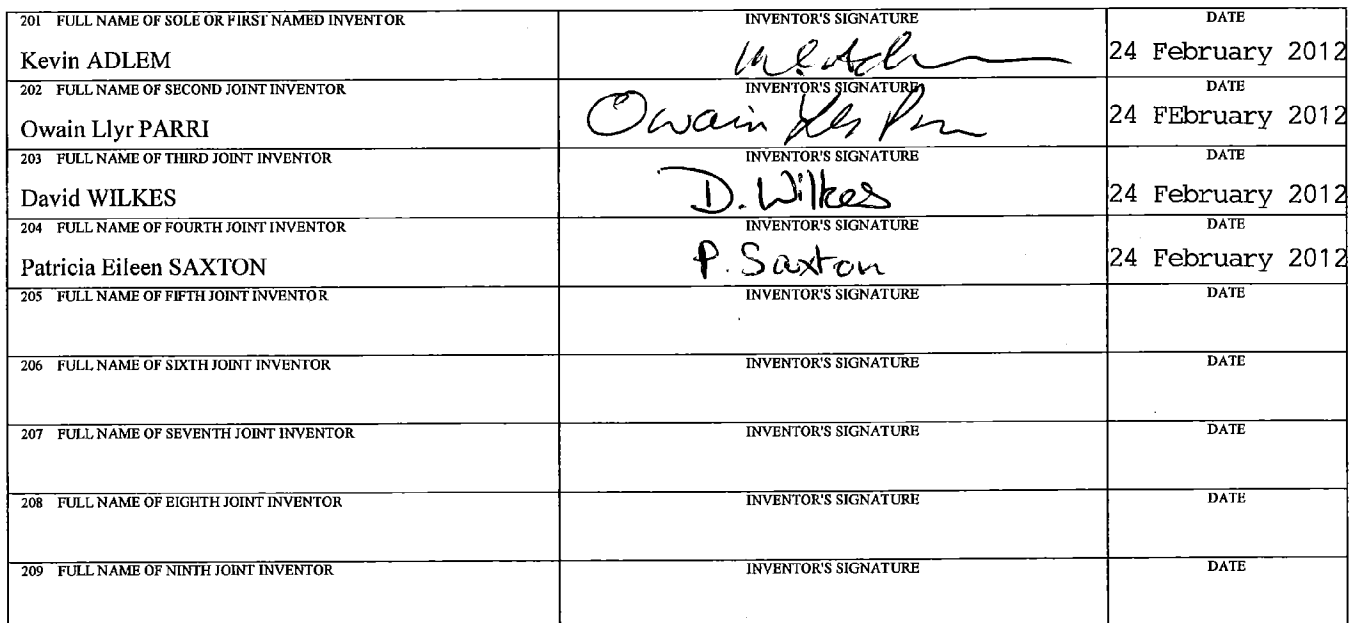 201 FULL NAME OF SOLE OR FIRST NAMED INVENTOR INVENTOR'S SIGNATURE DATE
Kevin ADLEM 24 February 2012
202 FULL NAME OF SECOND JOINT INVENTOR INVENTOR'S SIGNATURE DATE
Owain Llyr PARRI Owain 24 FEbruary 2012
203 FULL NAME OF THIRD JOINT INVENTOR INVENTOR'S SIGNATURE DATE
David WILKES D. Wilkes 24 February 2012
204 FULL NAME OF FOURTH JOINT INVENTOR INVENTOR'S SIGNATURE DATE
Patricia Eileen SAXTON P. Saxton 24 February 2012
205 FULL NAME OF FIFTH JOINT INVENTOR INVENTOR'S SIGNATURE DATE
206 FULL NAME OF SIXTH JOINT INVENTOR INVENTOR'S SIGNATURE DATE
207 FULL NAME OF SEVENTH JOINT INVENTOR INVENTOR'S SIGNATURE DATE
208 FULL NAME OF EIGHTH JOINT INVENTOR INVENTOR'S SIGNATURE DATE
209 FULL NAME OF NINTH JOINT INVENTOR INVENTOR'S SIGNATURE DATE